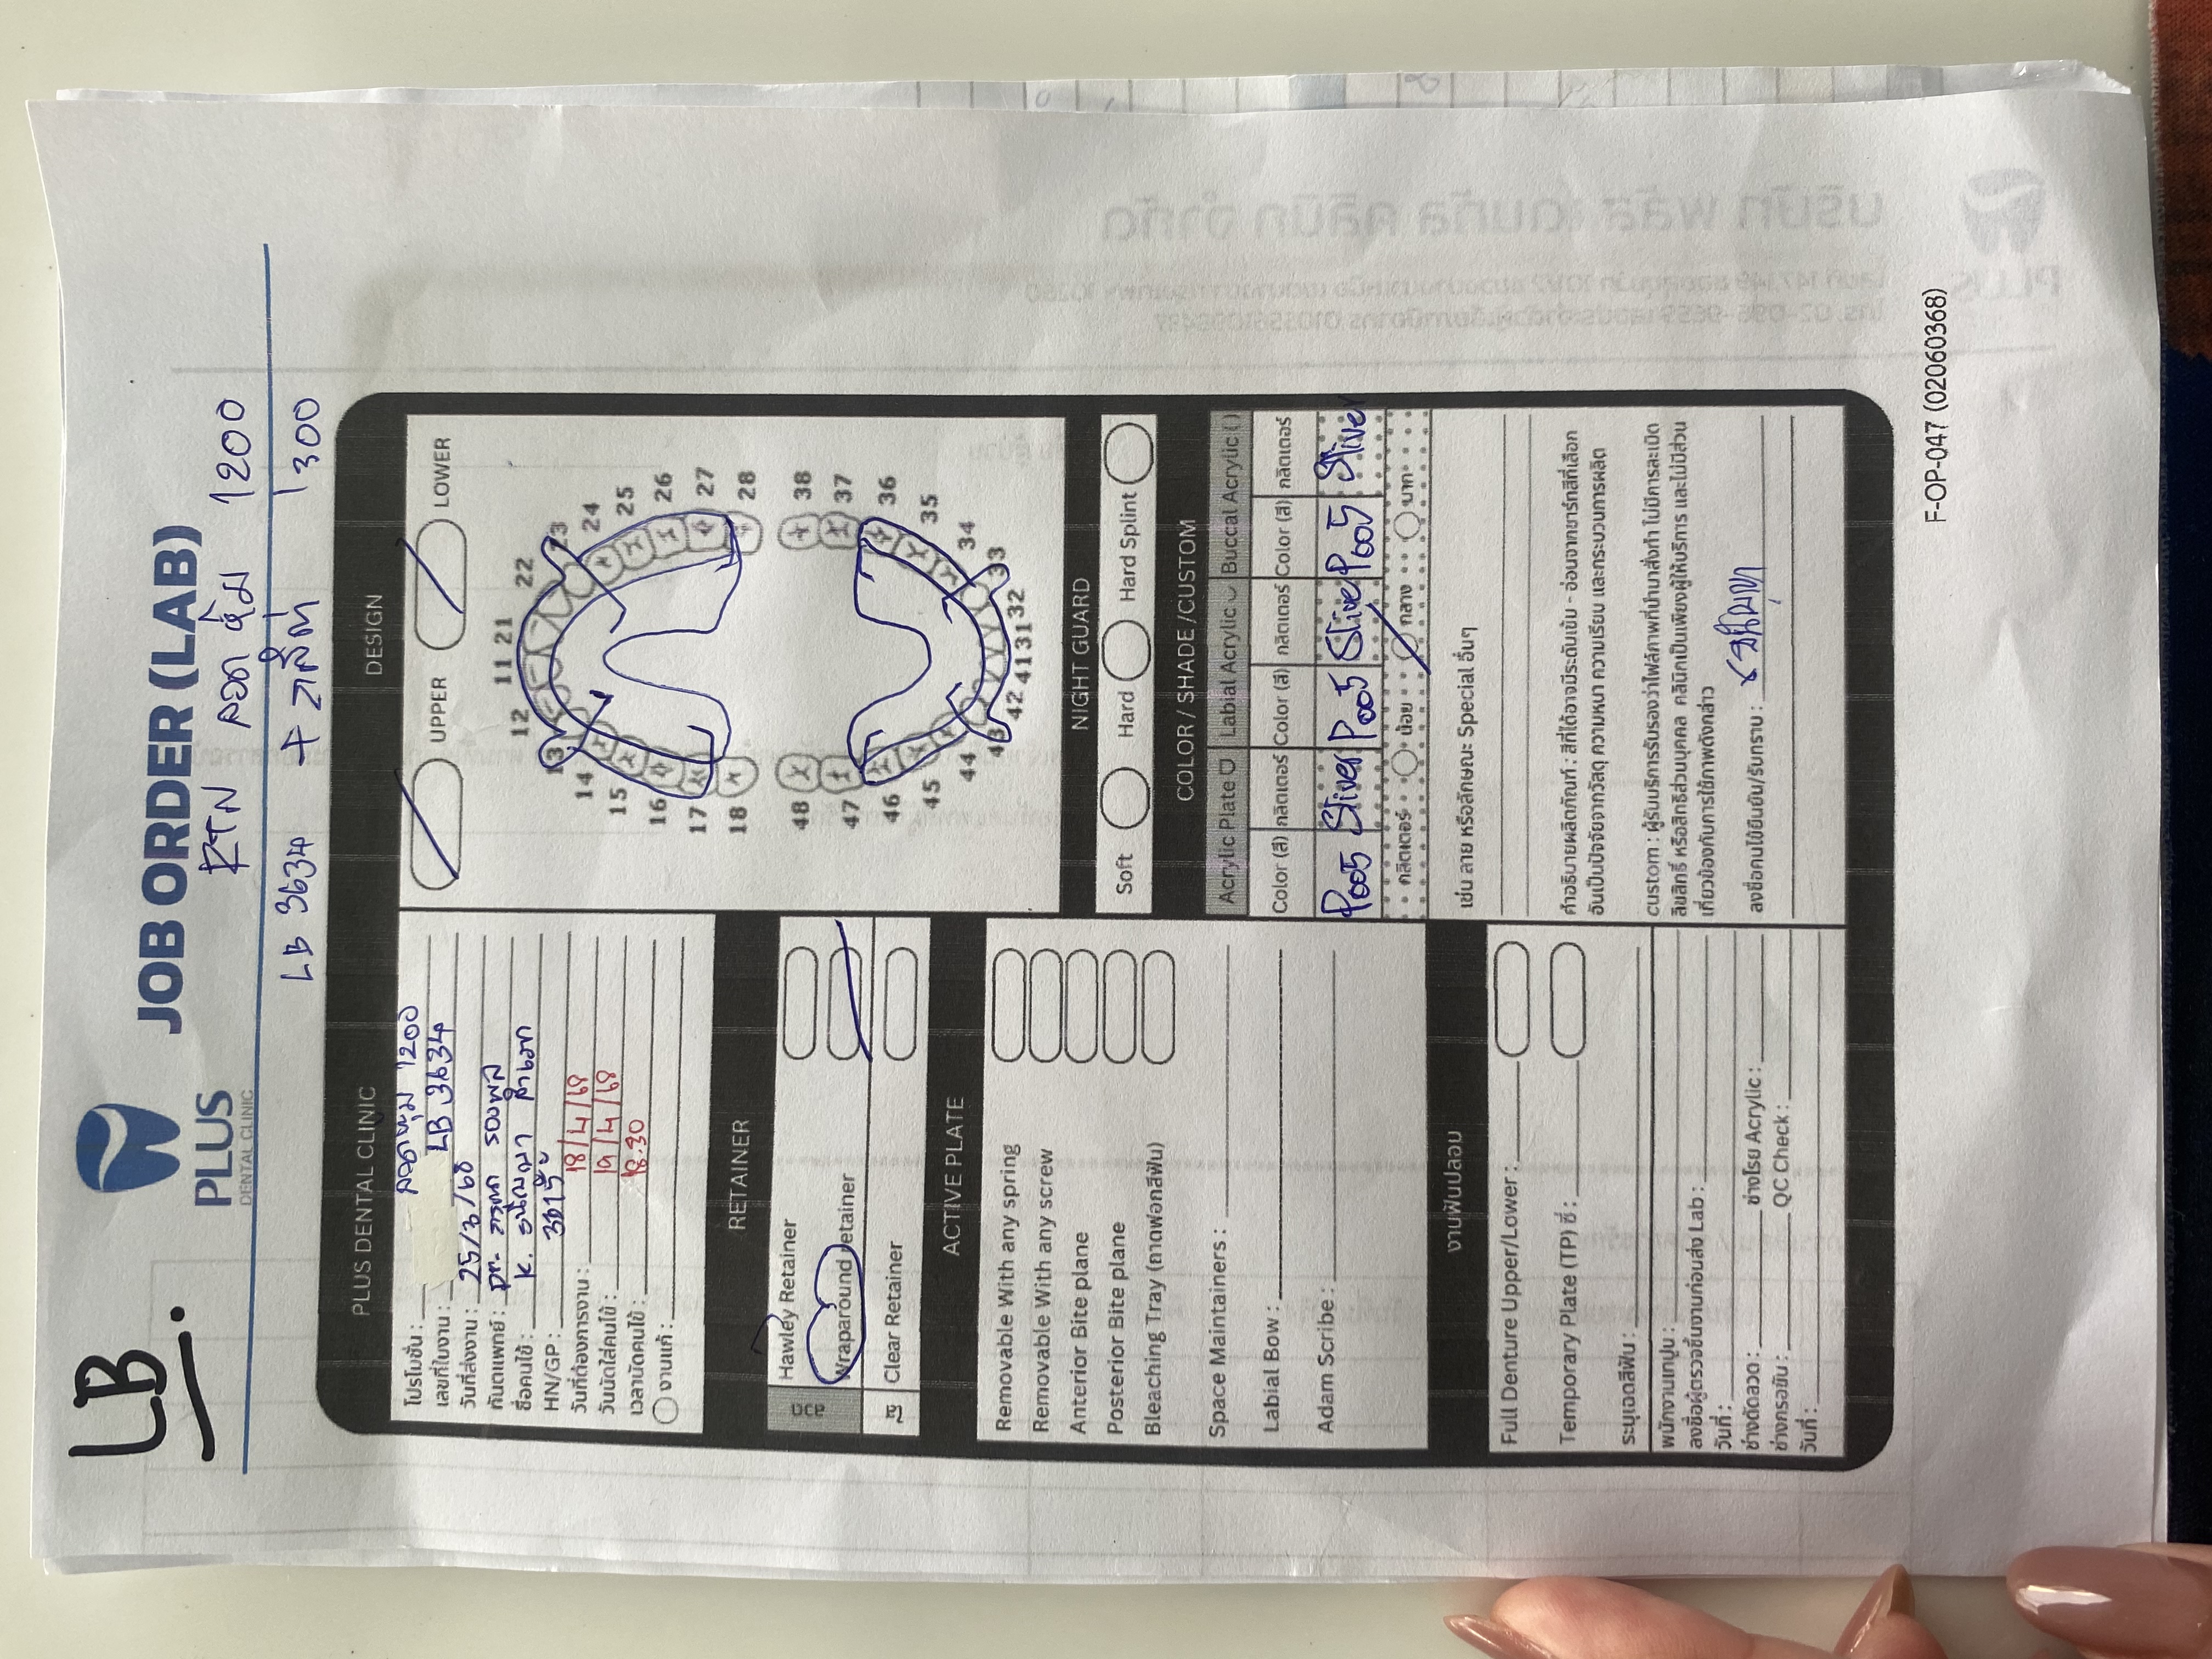 LB.
PLUS
DENTAL CLINIC
JOB ORDER (LAB)
RTN ลวด หุ้ม 1200
LB 3634 + 1300
PLUS DENTAL CLINIC
โปรโมชั่น : ลวดหุ้ม 1200
เลขที่ใบงาน : LB 3634
วันที่ส่งงาน : 25/3/68
ทันตแพทย์ : Dr.
ชื่อคนไข้ : K. ธนัญญา
HN/GP :
วันที่ต้องการงาน : 18/4/68
วันนัดใส่คนไข้ : 19/4/68
เวลานัดคนไข้ : 18.30
งานแก้ :
RETAINER
ลวด
Hawley Retainer
Wraparound retainer
ใส
Clear Retainer
ACTIVE PLATE
Removable With any spring
Removable With any screw
Anterior Bite plane
Posterior Bite plane
Bleaching Tray (ถาดฟอกสีฟัน)
Space Maintainers :
Labial Bow :
Adam Scribe :
งานฟันปลอม
Full Denture Upper/Lower :
Temporary Plate (TP) ซี่ :
ระบุเฉดสีฟัน :
พนักงานเทปูน :
ลงชื่อผู้ตรวจชิ้นงานก่อนส่ง Lab :
วันที่ :
ช่างดัดลวด : ช่างโรย Acrylic :
ช่างกรอขัน : QC Check :
วันที่ :
DESIGN
UPPER LOWER
11 21
12 22
13 23
14 24
15 25
16 26
17 27
18 28
48 38
47 37
46 36
45 35
44 34
43 33
42 41 31 32
NIGHT GUARD
Soft Hard Hard Splint
COLOR / SHADE /CUSTOM
Acrylic Plate Labial Acrylic Buccal Acrylic ( )
Color (สี) กลิตเตอร์ Color (สี) กลิตเตอร์ Color (สี) กลิตเตอร์
P005 Sliver P005 Slive P005 Sliver
กลิตเตอร์ น้อย กลาง มาก
เช่น ลาย หรือลักษณะ Special อื่นๆ
คำอธิบายผลิตภัณฑ์ : สีที่ได้อาจมีระดับเข้ม - อ่อนจากชาร์ทสีที่เลือก
อันเป็นปัจจัยจากวัสดุ ความหนา ความเรียบ และกระบวนการผลิต
custom : ผู้รับบริการรับรองว่าไฟล์ภาพที่นำมาสั่งทำ ไม่มีการละเมิด
ลิขสิทธิ์ หรือสิทธิส่วนบุคคล คลินิกเป็นเพียงผู้ให้บริการ และไม่มีส่วน
เกี่ยวข้องกับการใช้ภาพดังกล่าว
ลงชื่อคนไข้ยืนยัน/รับทราบ : ธนัญญา
F-OP-047 (02060368)